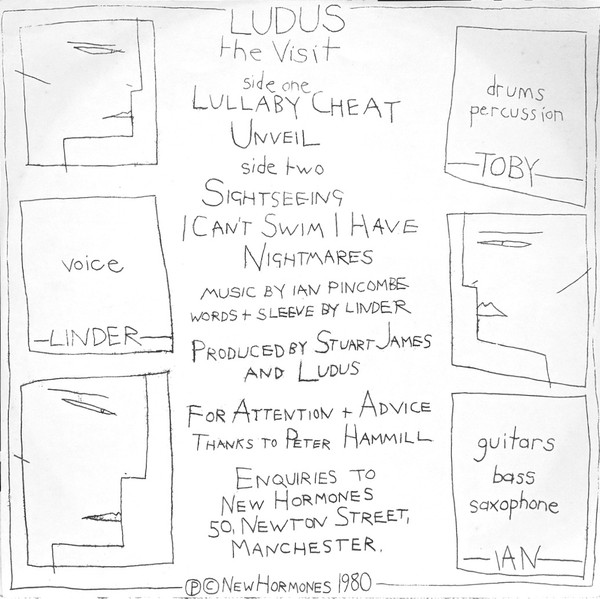 LUDUS
the Visit
side one
LULLABY CHEAT
UNVEIL
side two
SIGHTSEEING
I CAN'T SWIM I HAVE
NIGHTMARES
MUSIC BY IAN PINCOMBE
WORDS + SLEEVE BY LINDER
PRODUCED BY STUART JAMES
AND LUDUS
FOR ATTENTION + ADVICE
THANKS TO PETER HAMMILL
ENQUIRIES TO
NEW HORMONES
50, NEWTON STREET,
MANCHESTER.
℗ © NEW HORMONES 1980
voice
LINDER
drums
percussion
TOBY
guitars
bass
saxophone
IAN